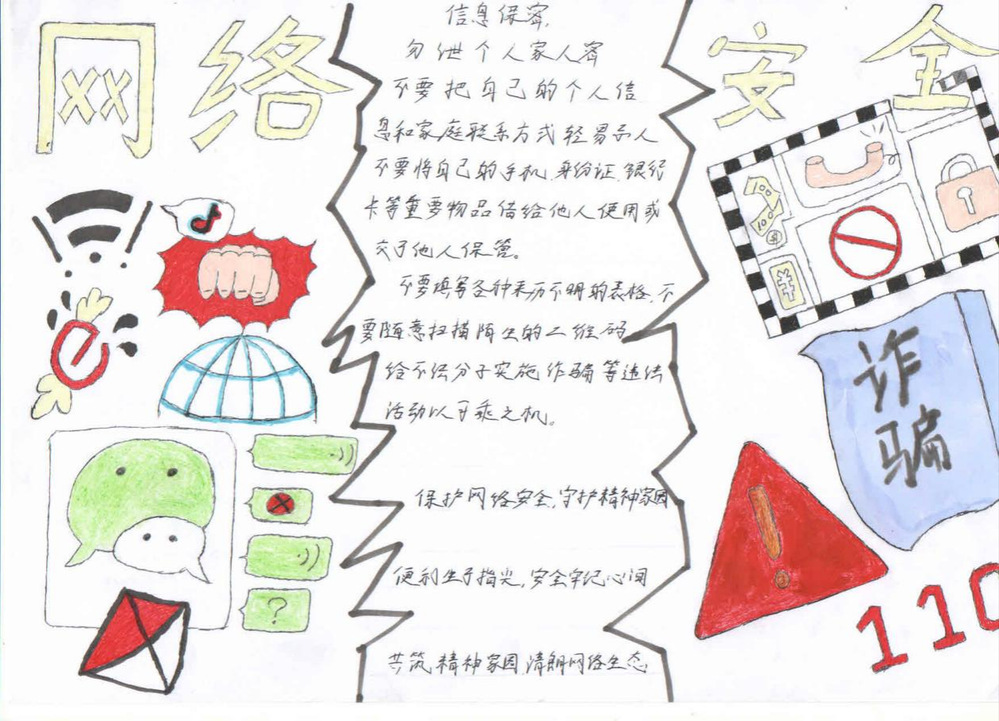 网络
安全
信息保密,
勿泄个人家人密
不要把自己的个人信
息和家庭联系方式轻易示人
不要将自己的手机、身份证、银行
卡等重要物品借给他人使用或
交于他人保管。
不要填写各种来历不明的表格,不
要随意扫描陌生的二维码
给不法分子实施诈骗等违法
活动以可乘之机。
保护网络安全,守护精神家园
便利生于指尖,安全牢记心间
共筑精神家园,清朗网络生态
¥
?
诈
骗
110